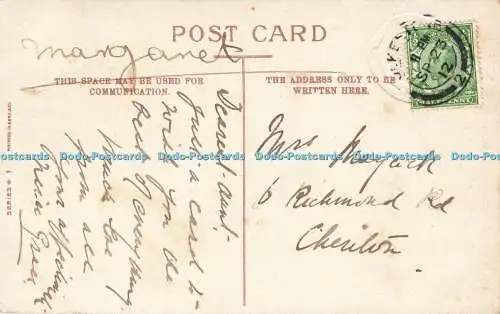 POST CARD
Margaret
THIS SPACE MAY BE USED FOR
COMMUNICATION.
THE ADDRESS ONLY TO BE
WRITTEN HERE.
Dearest Aunt,
Just a card to
wish you the
best of everything
from all
Your affectionate
Mrs
6 Richmond Rd
Cheriton
SP 3
12
PENNY
SERIES
Dodo-Postcards Dodo-Postcards Dodo-Postcards Dodo-Postcards Dodo-Postcards Dodo-Postcards